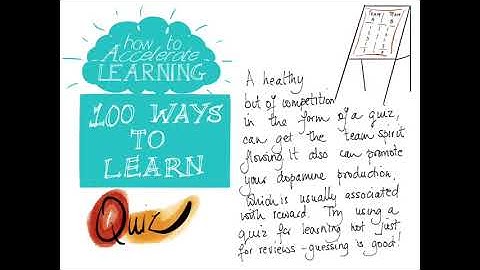 how to
Accelerate
LEARNING
100 WAYS
TO
LEARN
Quiz
Team
A
Team
B
A healthy
but of competition
in the form of a quiz,
can get the team spirit
flowing. It also can promote
your dopamine production,
which is usually associated
with reward. Try using a
quiz for learning not just
for reviews - guessing is good!